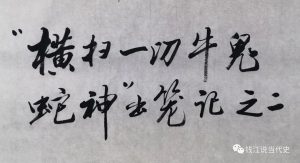 "横扫一切牛鬼
蛇神"出笼记之二
钱江说当代史